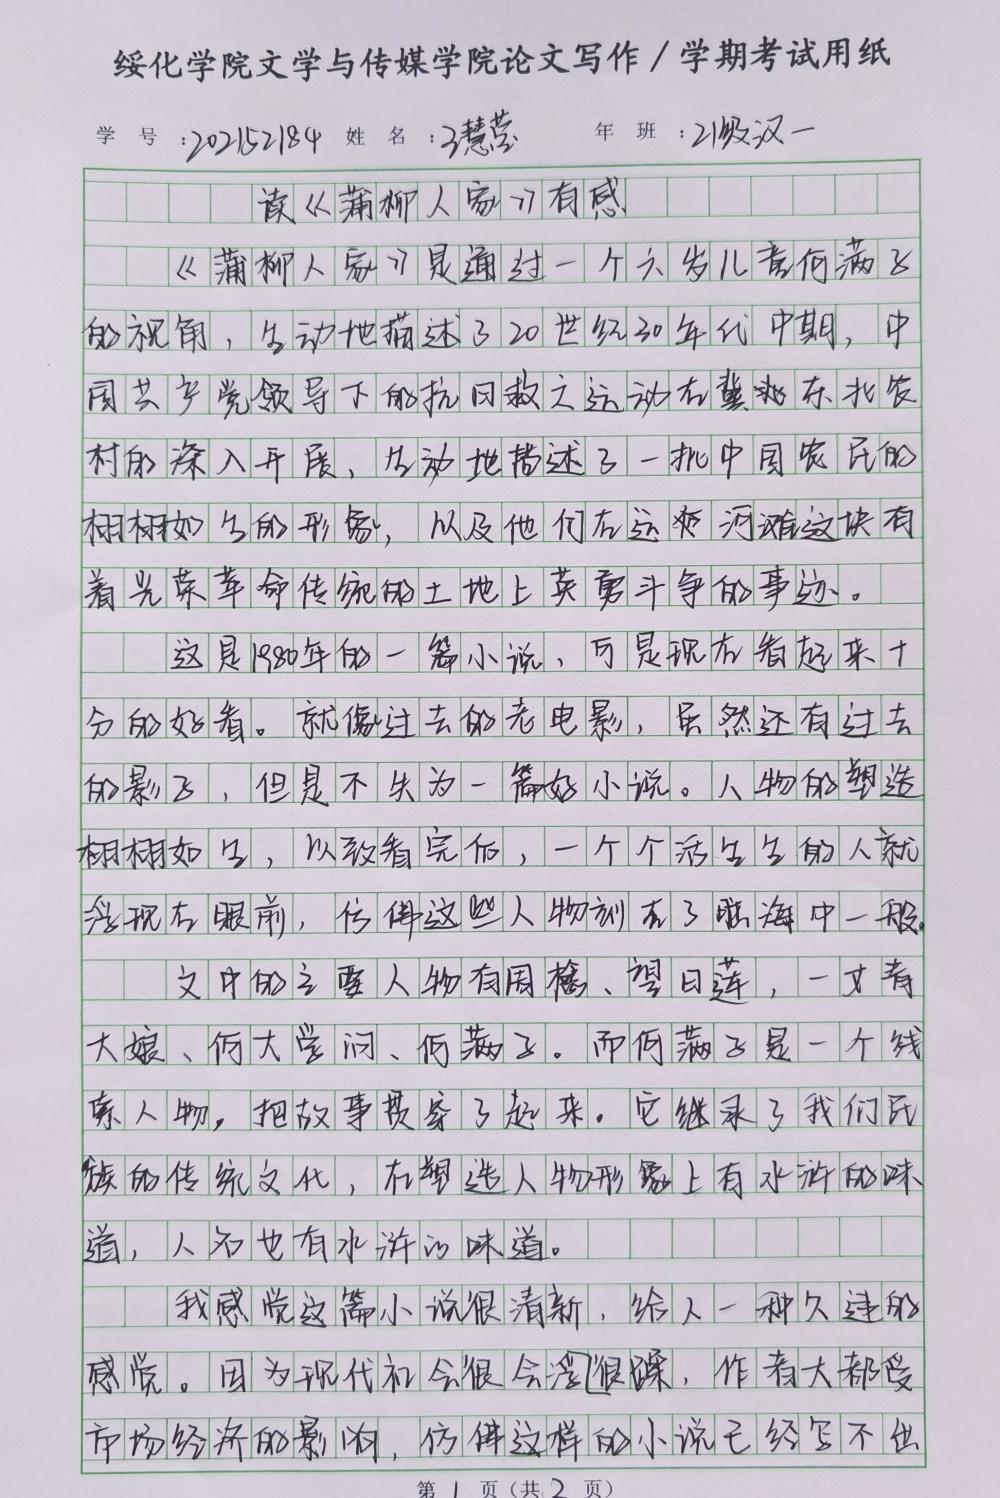 绥化学院文学与传媒学院论文写作／学期考试用纸
学 号：202152184 姓 名：慧莹 年 班：21级汉一
读《蒲柳人家》有感
《蒲柳人家》是通过一个六岁儿童何满子
的视角，生动地描述了20世纪30年代中期，中
国共产党领导下的抗日救亡运动在冀东北农
村的深入开展，生动地描述了一批中国农民的
栩栩如生的形象，以及他们在运河滩这块有
着光荣革命传统的土地上英勇斗争的事迹。
这是1980年的一篇小说，可是现在看起来十
分的好看。就像过去的老电影，虽然还有过去
的影子，但是不失为一篇好小说。人物的塑造
栩栩如生，以致看完后，一个个活生生的人就
浮现在眼前，仿佛这些人物刻在了脑海中一般。
文中的主要人物有周檎、望日莲，一丈青
大娘、何大学问、何满子。而何满子是一个线
索人物，把故事贯穿了起来。它继承了我们民
族的传统文化，在塑造人物形象上有水浒的味
道，人名也有水浒的味道。
我感觉这篇小说很清新，给人一种久违的
感觉。因为现代社会很会浮很躁，作者大都受
市场经济的影响，仿佛这样的小说已经写不出
第1页（共2页）